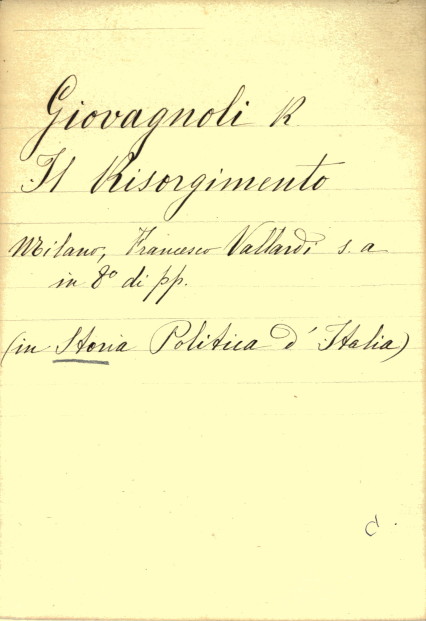 Giovagnoli R
Il Risorgimento
Milano, Francesco Vallardi s. a
in 8º di pp.
(in Storia Politica d' Italia)
C.